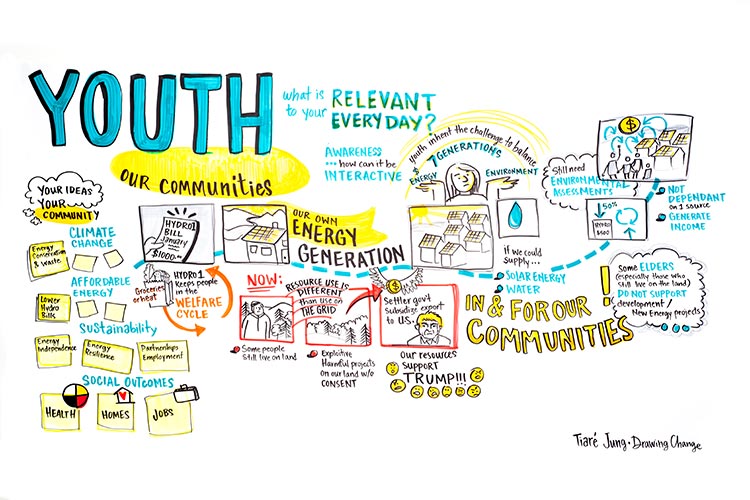 YOUTH
what is
to your
RELEVANT
EVERY DAY?
AWARENESS
... how can it be
INTERACTIVE
OUR COMMUNITIES
youth inherit the challenge to balance
$ 7 GENERATIONS
ENERGY
ENVIRONMENT
Still need
ENVIRONMENTAL
ASSESSMENTS
$
NOT
DEPENDANT
on 1 source
GENERATE
INCOME
YOUR IDEAS
YOUR
COMMUNITY
CLIMATE
CHANGE
Energy
Conservation
& Waste
AFFORDABLE
ENERGY
Lower
Hydro
Bills
Sustainability
Energy
Independence
Energy
Resilience
Partnerships
Employment
SOCIAL OUTCOMES
HEALTH
HOMES
JOBS
HYDRO1
BILL
January
$1000.00
Groceries
or heat
HYDRO1
Keeps people
in the
WELFARE
CYCLE
OUR OWN
ENERGY
GENERATION
NOW:
RESOURCE USE IS
DIFFERENT
than use on
THE GRID
Some people
Still live on land
Exploitive
Harmful projects
on our land w/o
CONSENT
$
Settler gov't
Subsidize export
to U.S.
Our resources
support
TRUMP!!!
If we could
supply...
SOLAR ENERGY
WATER
50%
HYDRO
$500
IN & FOR OUR
COMMUNITIES
!
Some ELDERS
(especially those who
still live on the land)
DO NOT SUPPORT
development/
New Energy projects
Tiaré Jung · Drawing Change